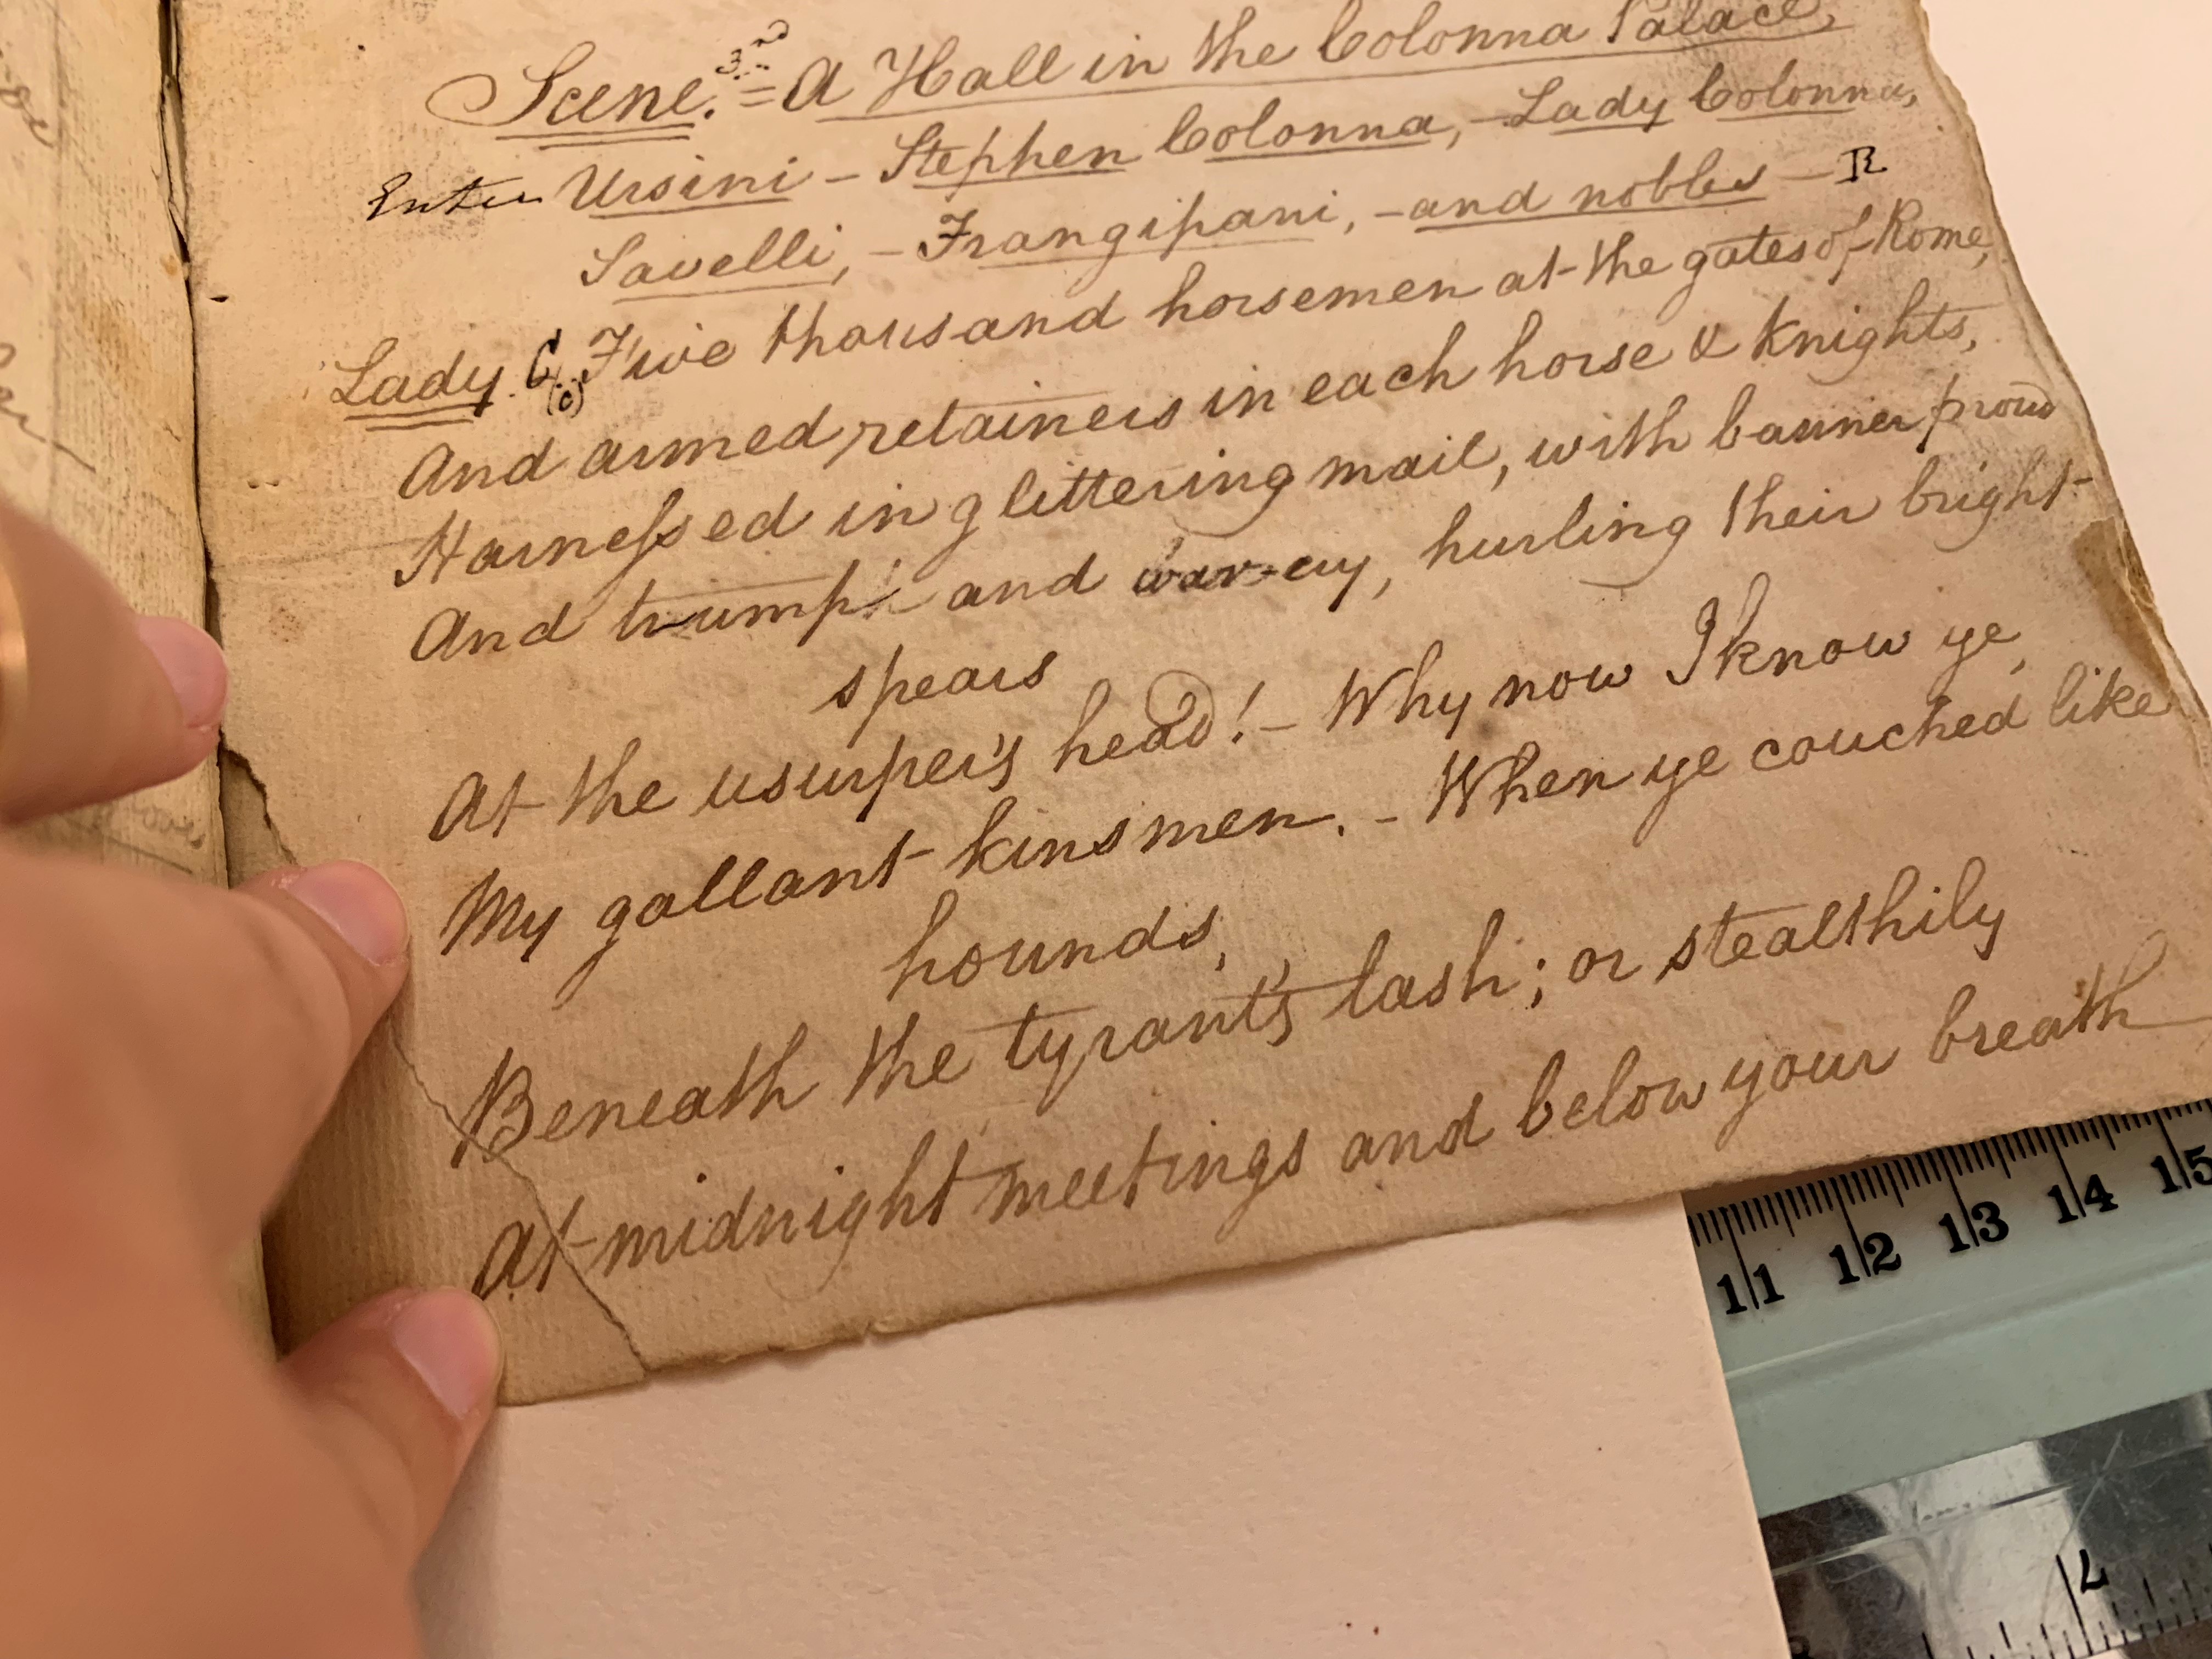 Scene. 3rd = A Hall in the Colonna Palace,
Enter Ursini - Stephen Colonna, - Lady Colonna,
Savelli, - Frangipani, - and nobles - R
Lady. C. (c) Five thousand horsemen at the gates of Rome,
And armed retainers in each horse & knights,
Harneſsed in glittering mail, with banner proud
And trump and war-cry, hurling their bright
spears
At the usurper's head! - Why now I know ye,
My gallant kinsmen. - When ye couched like
hounds,
Beneath the tyrant's lash; or stealthily
At midnight meetings and below your breath
11 12 13 14 15
7